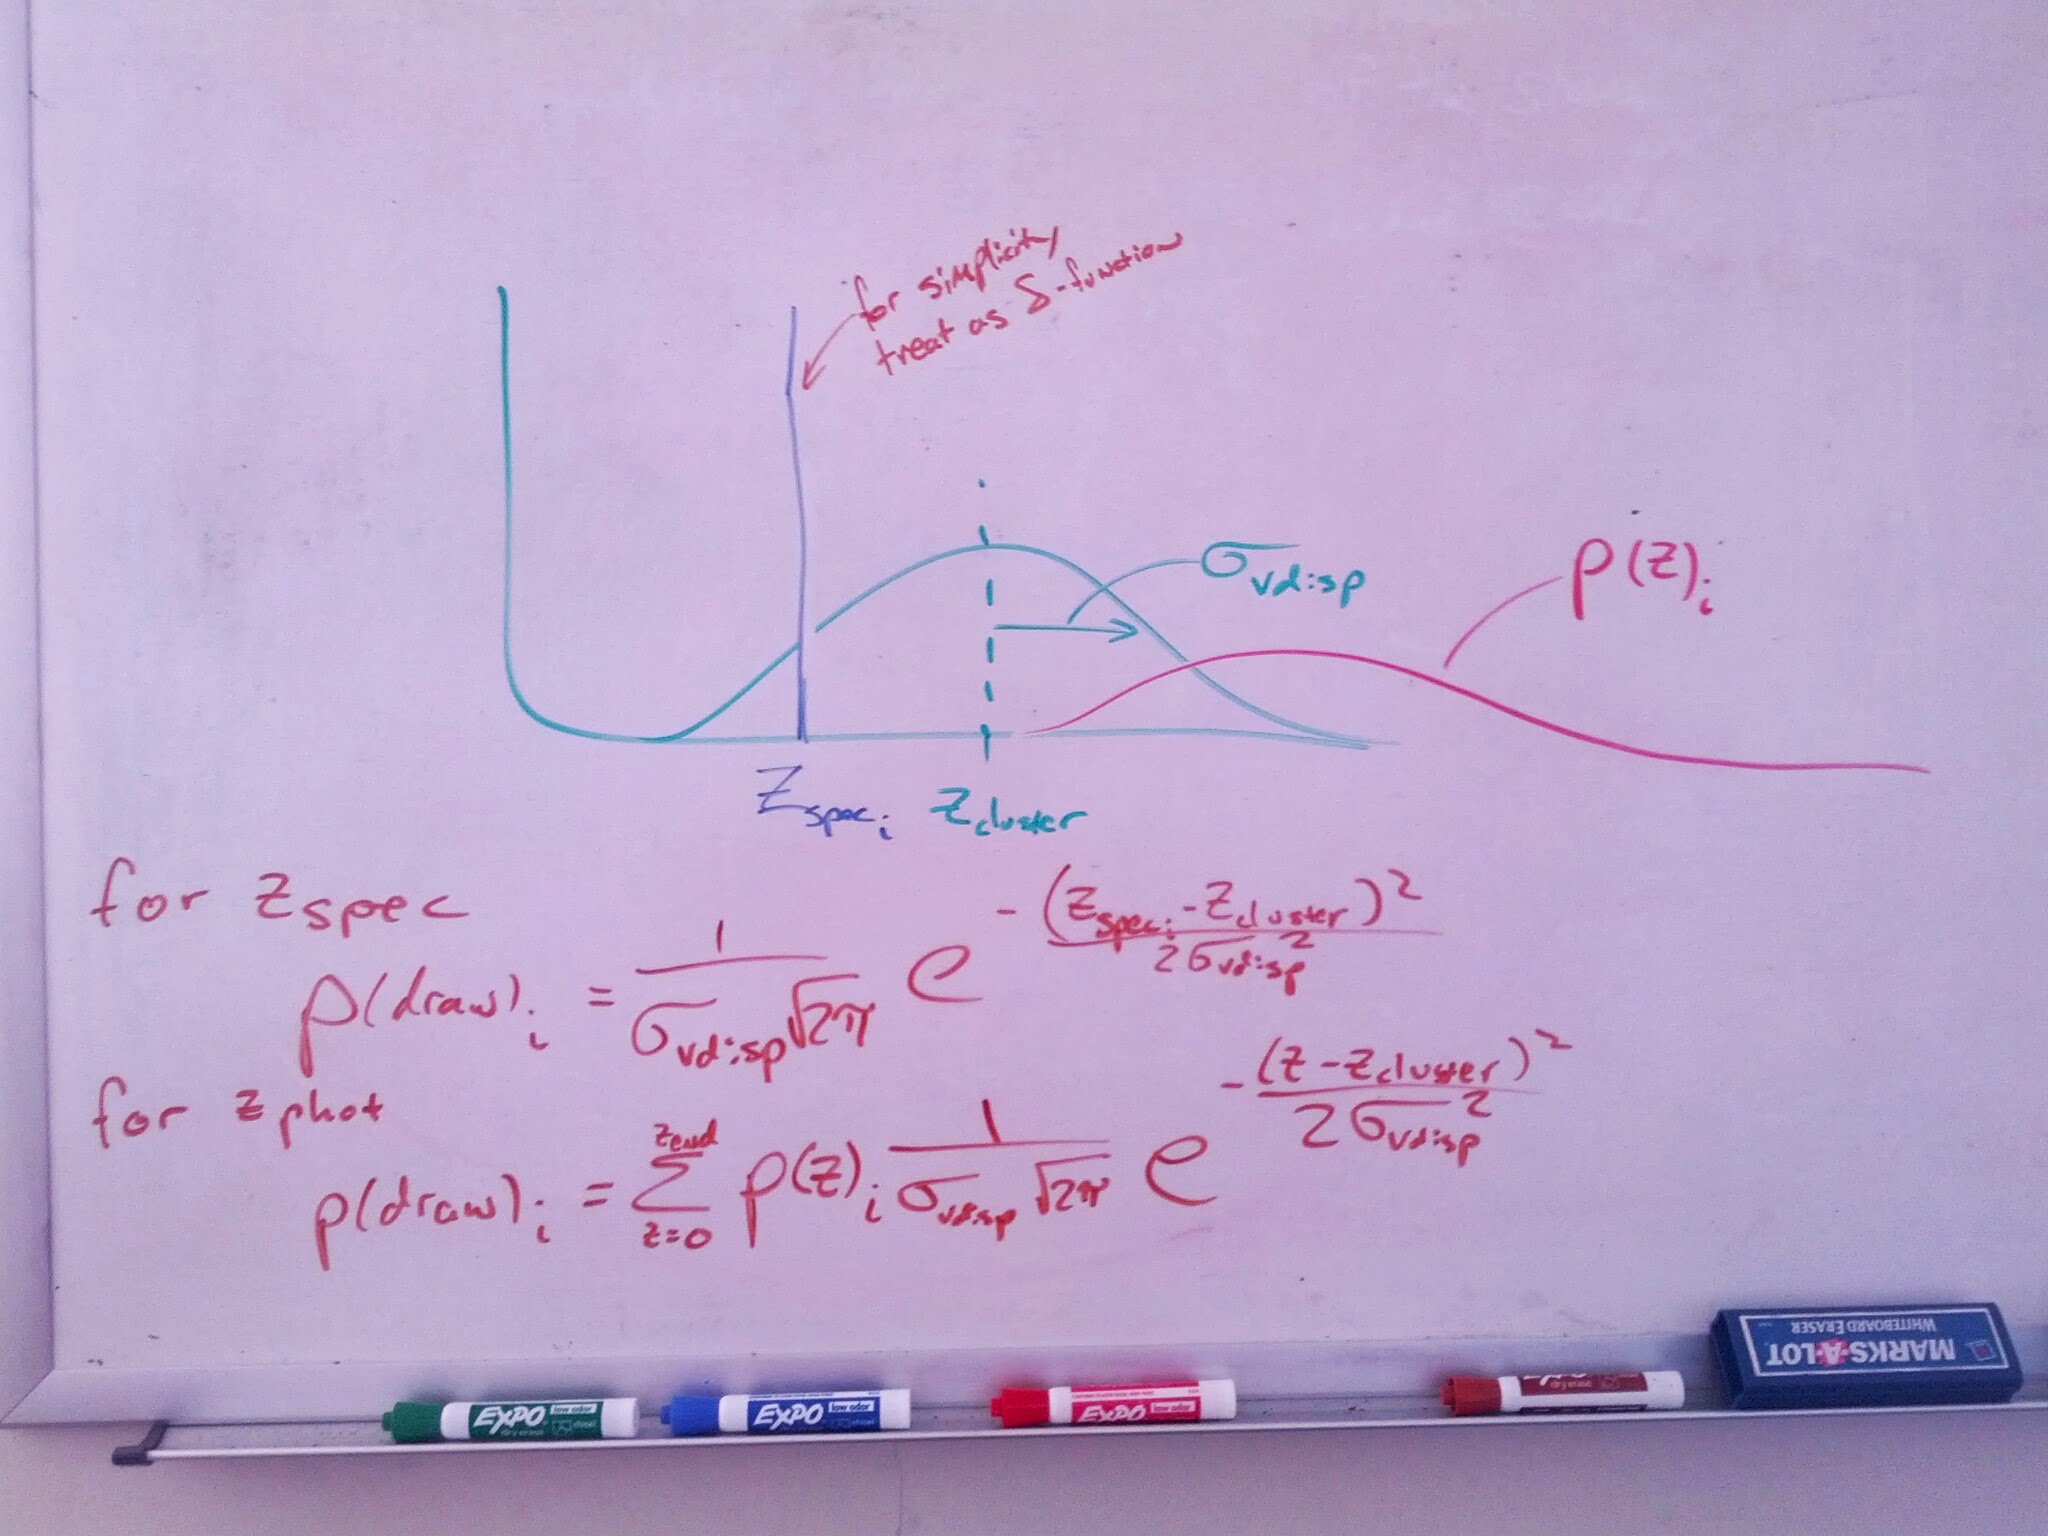 for simplicity
treat as δ-function
σ_vdisp
p(z)_i
z_spec_i z_cluster
for z_spec
p(draw)_i = 1/(σ_vdisp √2π) e^(-(z_spec_i - z_cluster)^2/(2σ_vdisp^2))
for z_phot
p(draw)_i = Σ_{z=0}^{zend} p(z)_i 1/(σ_vdisp √2π) e^(-(z - z_cluster)^2/(2σ_vdisp^2))
EXPO low odor dry erase chisel
EXPO low odor chisel
EXPO low odor
dry erase
MARKS-A-LOT
WHITEBOARD ERASER